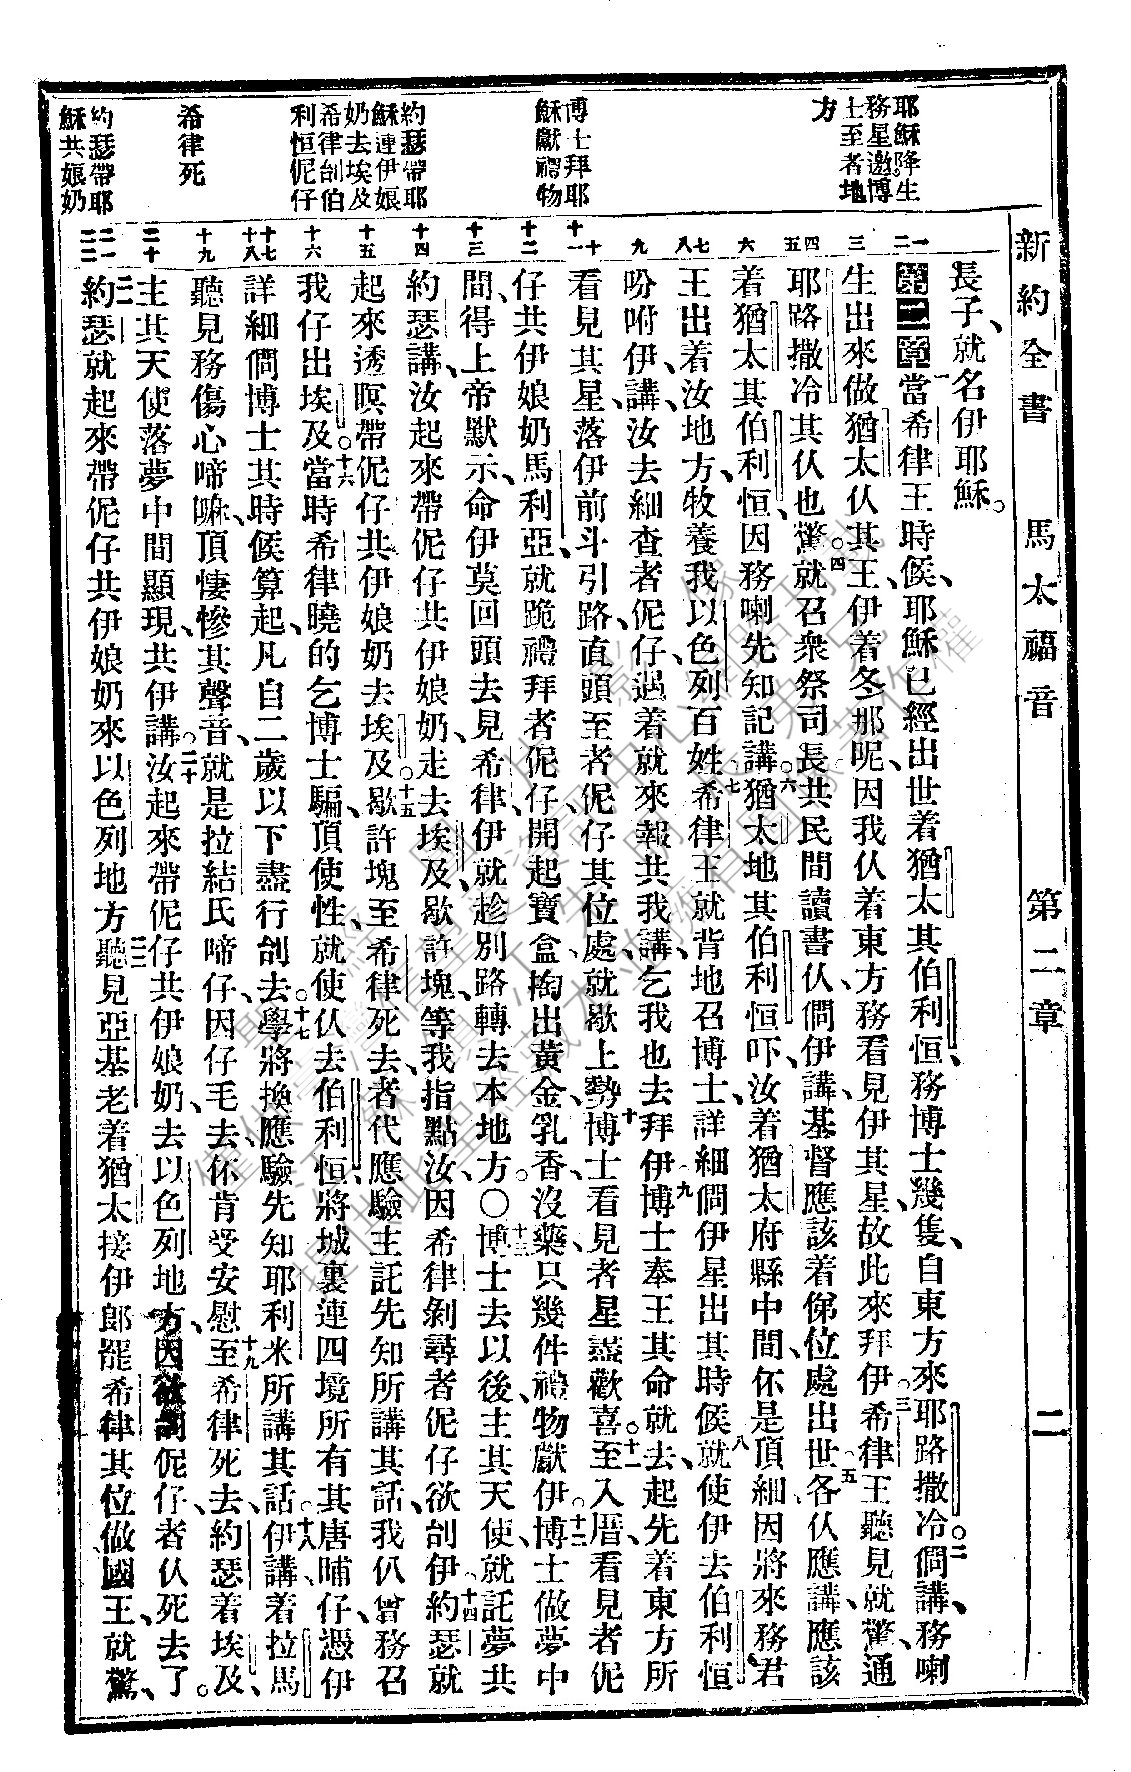 新約全書 馬太福音 第二章 二
耶穌降生
務星邀博
士至者地
方
博士拜耶
穌獻禮物
約瑟帶耶
穌連伊娘
奶去埃及
希律刣伯
利恒伲仔
希律死
約瑟帶耶
穌共娘奶
一 二 三 四 五 六 七 八 九 十 十一 十二 十三 十四 十五 十六 十七 十八 十九 二十 二一 二二
長子、就名伊耶穌。
第二章 一當希律王時候、耶穌已經出世着猶太其伯利恒、務博士幾隻、自東方來耶路撒冷。二僩講、務喇
生出來做猶太仈其王、伊着冬那呢、因我仈着東方務看見伊其星、故此來拜伊。三希律王聽見就驚、通
耶路撒冷其仈也驚。四就召衆祭司長共民間讀書仈、僩伊講、基督應該着俤位處出世、五各仈應講、應該
着猶太其伯利恒、因務喇先知記講、六猶太地其伯利恒吓、汝着猶太府縣中間、伓是頂細、因將來務君
王出着汝地方、牧養我以色列百姓、七希律王就背地召博士、詳細僩伊星出其時候、八就使伊去伯利恒
吩咐伊、講、汝去細查者伲仔、遇着就來報共我講、乞我也去拜伊、九博士奉王其命就去、起先着東方所
看見其星、落伊前斗引路、直頭至者伲仔其位處、就歇上勢、十博士看見者星、盡歡喜。十一至入厝、看見者伲
仔共伊娘奶馬利亞、就跪禮拜者伲仔、開起寶盒掏出黃金、乳香、沒藥、只幾件禮物獻伊。十二博士做夢中
間、得上帝默示、命伊莫回頭去見希律、伊就趁別路轉去本地方。○十三博士去以後、主其天使、就託夢共
約瑟講、汝起來帶伲仔共伊娘奶、走去埃及、歇許塊、等我指點汝、因希律剝尋者伲仔、欲刣伊、十四約瑟就
起來透暝帶伲仔共伊娘奶去埃及。十五歇許塊至希律死去、者代應驗主託先知所講其話、我仈曾務召
我仔出埃及。十六當時希律曉的乞博士騙、頂使性、就使仈去伯利恒、將城裏連四境所有其唐晡仔、憑伊
詳細僩博士其時候算起、凡自二歲以下盡行刣去。十七學將換應驗先知耶利米所講其話。十八伊講、着拉馬
聽見務傷心啼嘛、頂悽慘其聲音、就是拉結氏啼仔、因仔毛去、伓肯受安慰、十九至希律死去、約瑟着埃及、
主其天使落夢中間顯現、共伊講。二十汝起來帶伲仔共伊娘奶、去以色列地方、因欲刣伲仔者仈死去了。
二一約瑟就起來帶伲仔共伊娘奶來以色列地方、二二聽見亞基老着猶太接伊郎罷希律其位做國王、就驚、